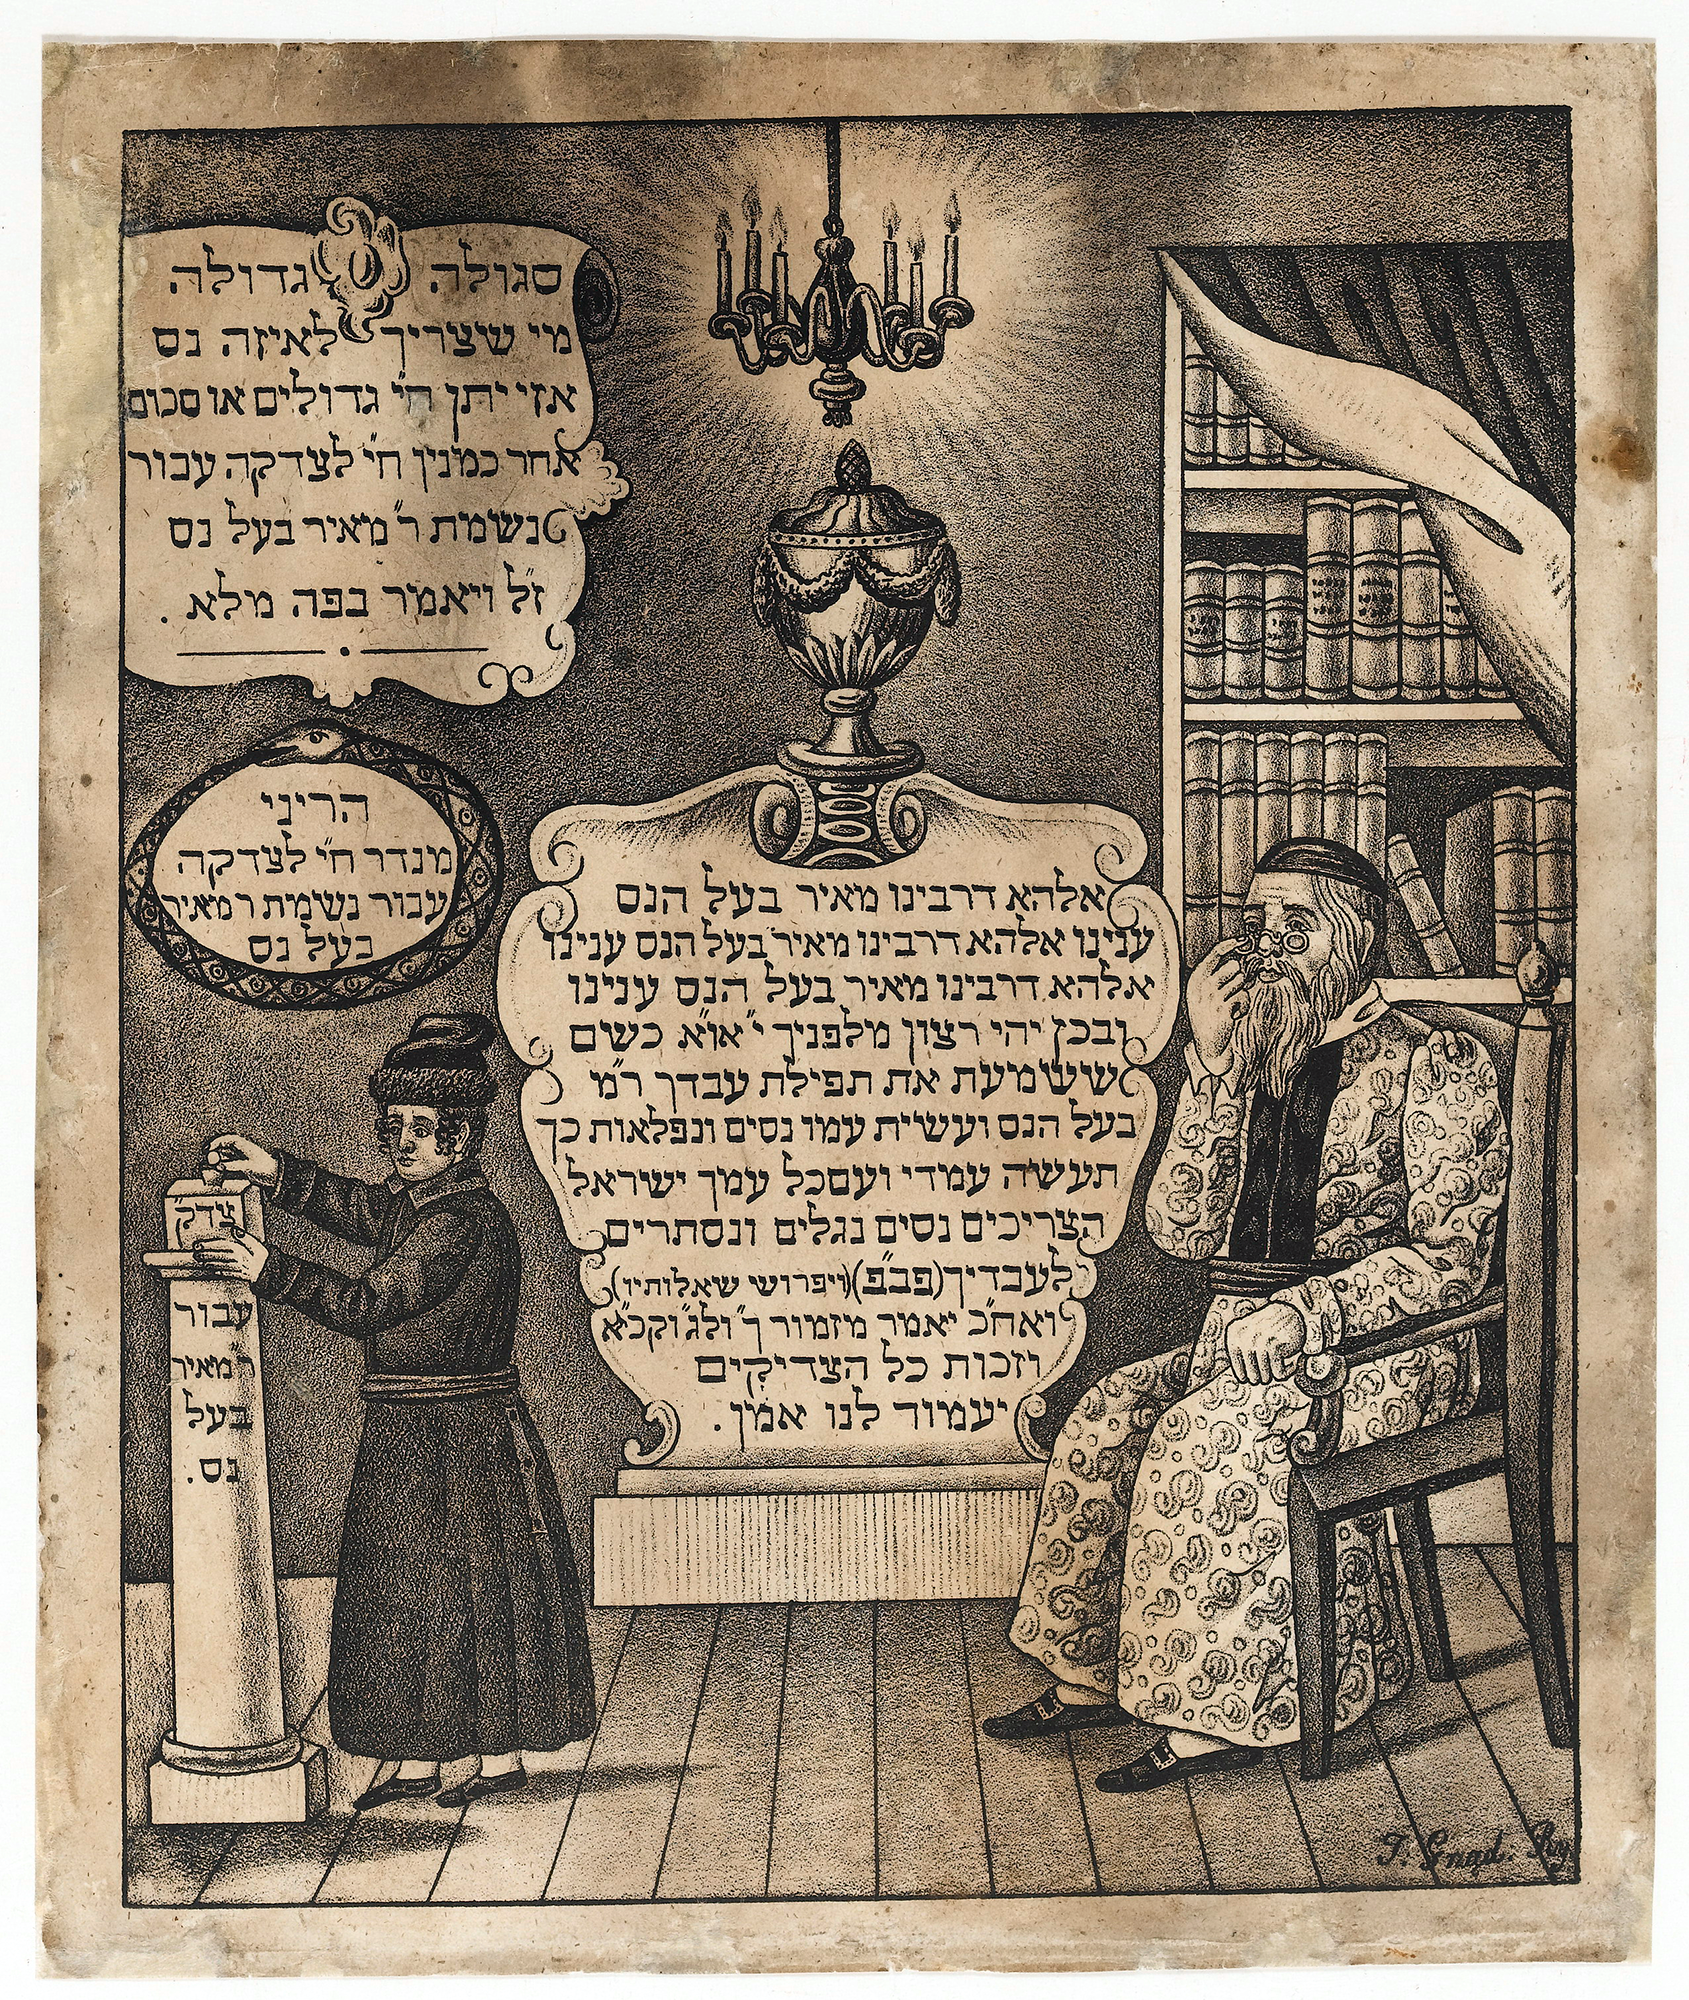 סגולה גדולה
מי שצריך לאיזה נס
אזי יתן ח״י גדולים או סכום
אחר כמנין ח״י לצדקה עבור
נשמת ר״ מאיר בעל נס
ז״ל ויאמר בפה מלא .
הריני
מנדר ח״י לצדקה
עבור נשמת ר מאיר
בעל נס
אלהא דרבינו מאיר בעל הנס
ענינו אלהא דרבינו מאיר בעל הנס ענינו
אלהא דרבינו מאיר בעל הנס ענינו
ובכן יהי רצון מלפניך י״או״א כשם
ששמעת את תפילת עבדך ר״מ
בעל הנס ועשית עמו נסים ונפלאות כך
תעשה עמדי ועם כל עמך ישראל
הצריכים נסים נגלים ונסתרים
לעבדיך (פב״פ) (ויפרוש שאלותיו)
ואח״כ יאמר מזמור ך״ ול״ג וקכ״א
וזכות כל הצדיקים
יעמוד לנו אמן .
צדק
עבור
ר מאיר
בעל
נס .
J. Gnad.